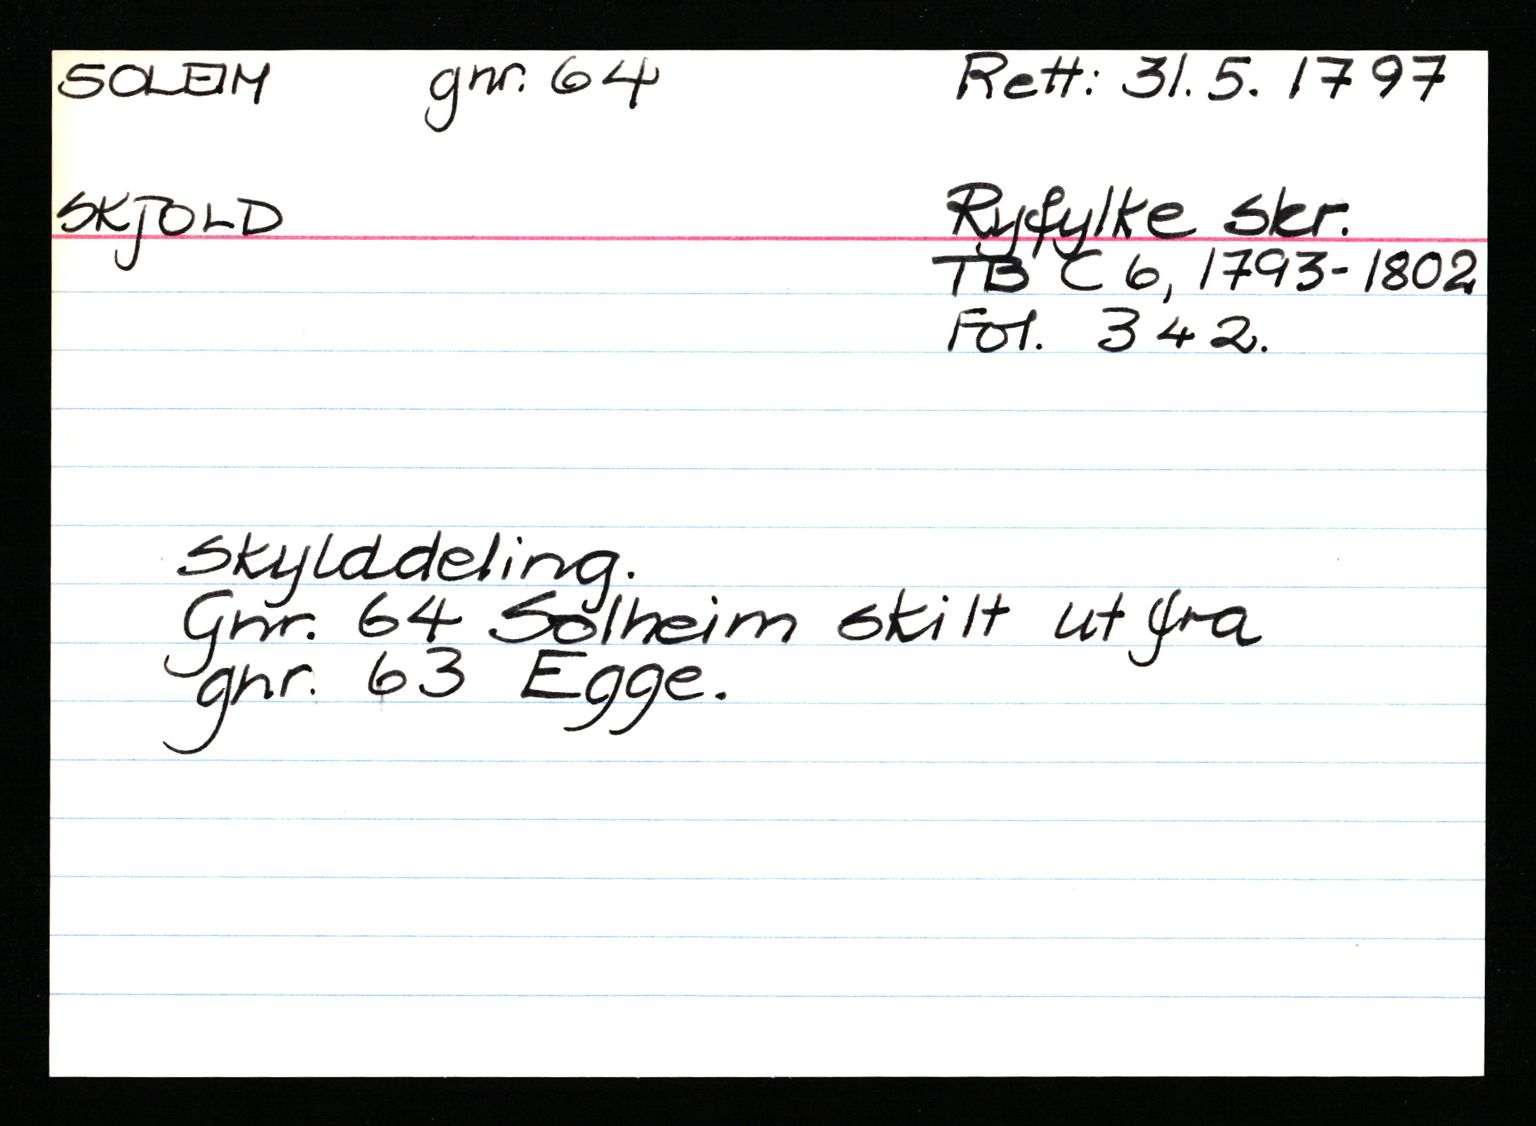 SOLEIM gnr. 64 Rett: 31.5.1797
SKJOLD Ryfylke skr.
TB C 6, 1793-1802
Fol. 342.
Skylddeling.
Gnr. 64 Solheim skilt ut fra
gnr. 63 Egge.